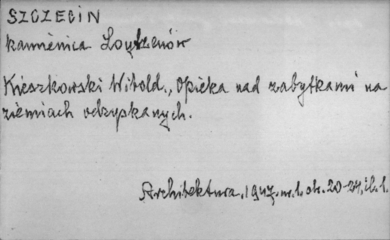 SZCZECIN
kamienica Loytzenów
Kieszkowski Witold., Opieka nad zabytkami na
ziemiach odzyskanych.
Architektura, 1947. nr. 1. ok. 20-24, il. 1.